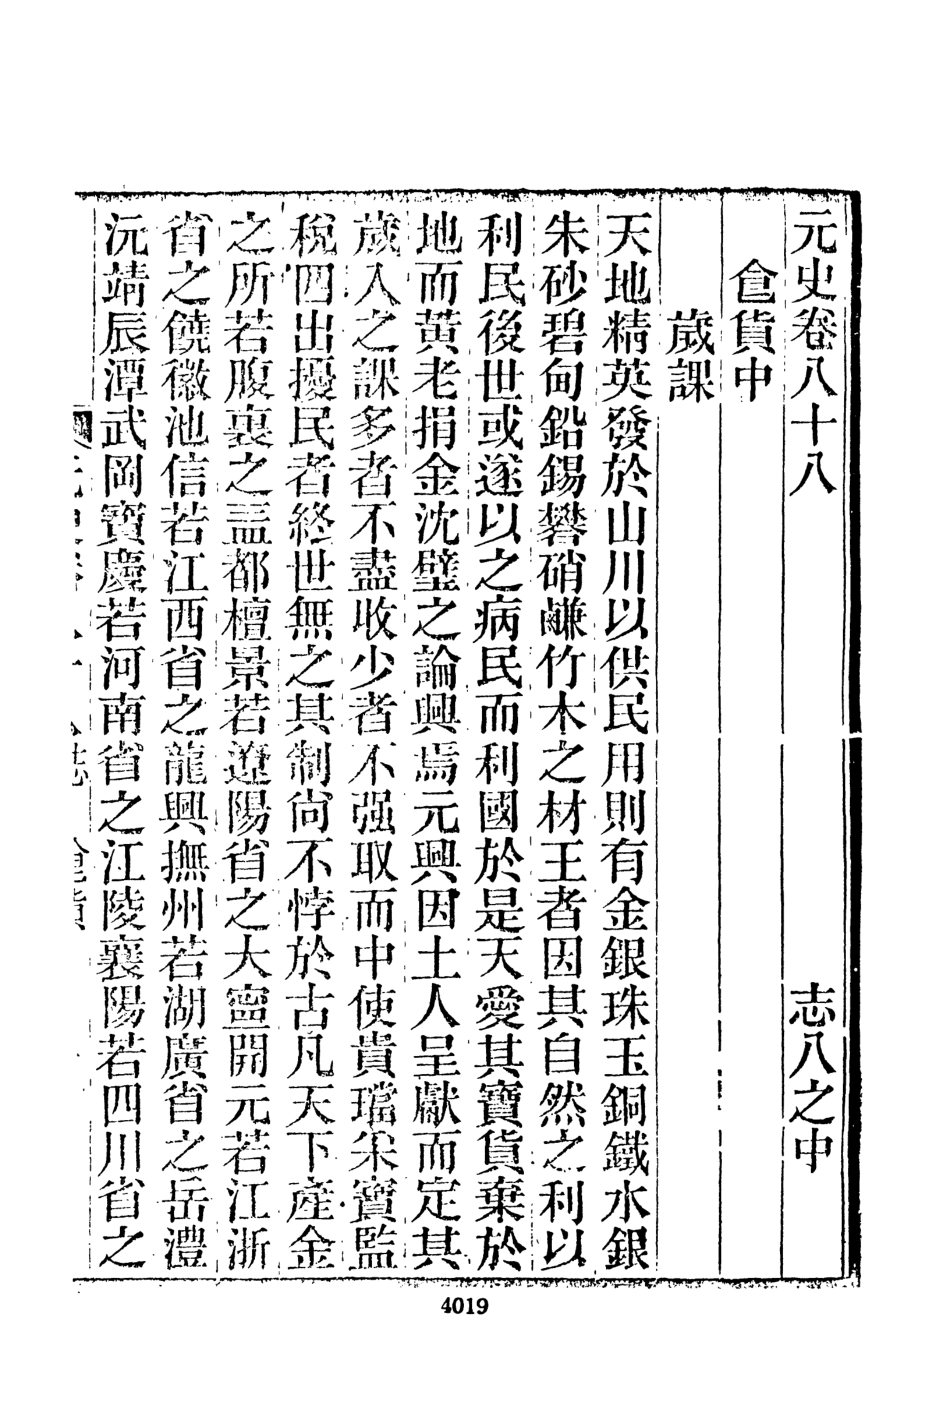 元史卷八十八　志八之中
食貨中
歲課
天地精英發於山川以供民用則有金銀珠玉銅鐵水銀
朱砂碧甸鉛錫礬硝鹻竹木之材王者因其自然之利以
利民後世或遂以之病民而利國於是天愛其寶貨棄於
地而黃老捐金沈璧之論興焉元興因土人呈獻而定其
歲入之課多者不盡收少者不强取而中使貴璫采寶監
稅四出擾民者終世無之其制尙不悖於古凡天下產金
之所若腹裏之盂都檀景若遼陽省之大寍開元若江浙
省之饒徽池信若江西省之龍興撫州若湖廣省之岳澧
沅靖辰潭武岡寶慶若河南省之江陵襄陽若四川省之
4019